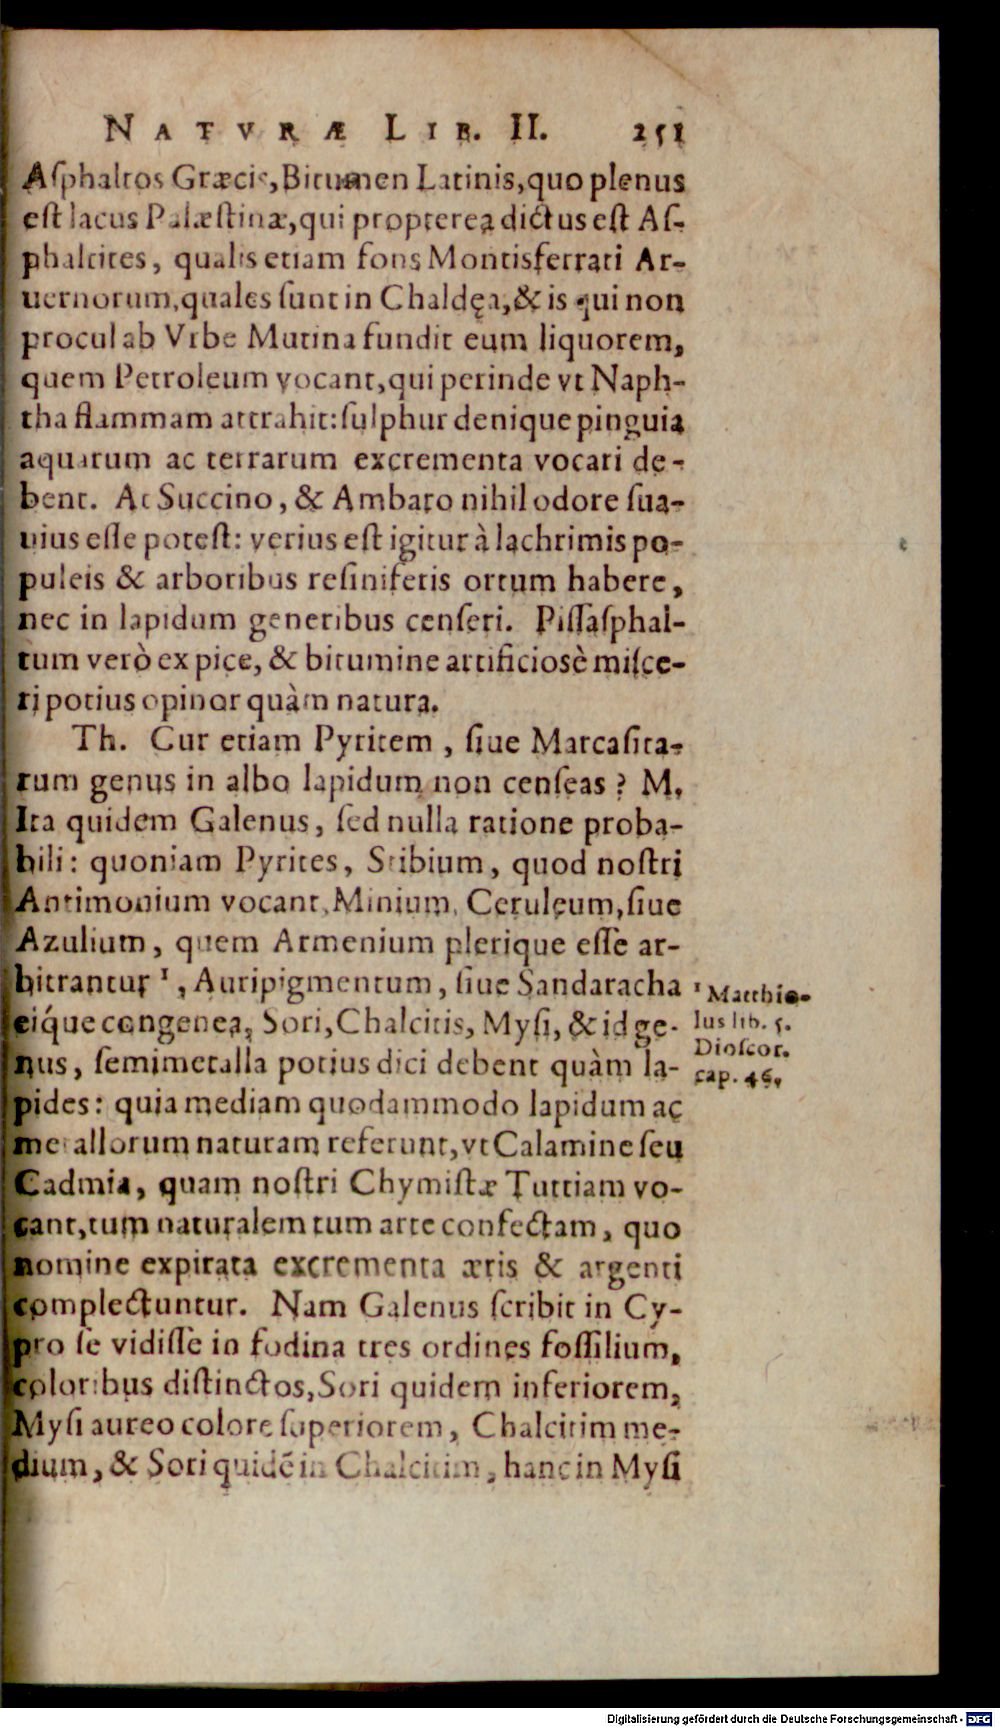 NATVRÆ LIB. II. 251
Aſphaltos Græcis, Bitumen Latinis, quo plenus
eſt lacus Palæſtinæ, qui propterea dictus eſt Aſ-
phaltites, qualis etiam fons Montisferrati Ar-
uernorum, quales ſunt in Chaldęa, & is qui non
procul ab Vrbe Mutina fundit eum liquorem,
quem Petroleum vocant, qui perinde vt Naph-
tha flammam attrahit: ſulphur denique pinguia
aquarum ac terrarum excrementa vocari de-
bent. At Succino, & Ambaro nihil odore ſua-
uius eſſe poteſt: verius eſt igitur à lachrimis po-
puleis & arboribus reſiniferis ortum habere,
nec in lapidum generibus cenſeri. Piſſaſphal-
tum verò ex pice, & bitumine artificiosè miſce-
ri potius opinor quàm natura.
Th. Cur etiam Pyritem, ſiue Marcaſita-
rum genus in albo lapidum non cenſeas? M.
Ita quidem Galenus, ſed nulla ratione proba-
bili: quoniam Pyrites, Stibium, quod noſtri
Antimonium vocant, Minium, Ceruleum, ſiue
Azulium, quem Armenium plerique eſſe ar-
bitrantur ¹, Auripigmentum, ſiue Sandaracha
eíque congenea, Sori, Chalcitis, Myſi, & id ge-
nus, ſemimetalla potius dici debent quàm la-
pides: quia mediam quodammodo lapidum ac
metallorum naturam referunt, vt Calamine ſeu
Cadmia, quam noſtri Chymiſtæ Tuttiam vo-
cant, tum naturalem tum arte confectam, quo
nomine expirata excrementa æris & argenti
complectuntur. Nam Galenus ſcribit in Cy-
pro ſe vidiſſe in fodina tres ordines foſſilium,
coloribus diſtinctos, Sori quidem inferiorem,
Myſi aureo colore ſuperiorem, Chalcitim me-
dium, & Sori quidē in Chalcitim, hanc in Myſi
¹ Matthio-
lus lib. 5.
Dioſcor.
cap. 46.
Digitalisierung gefördert durch die Deutsche Forschungsgemeinschaft - DFG